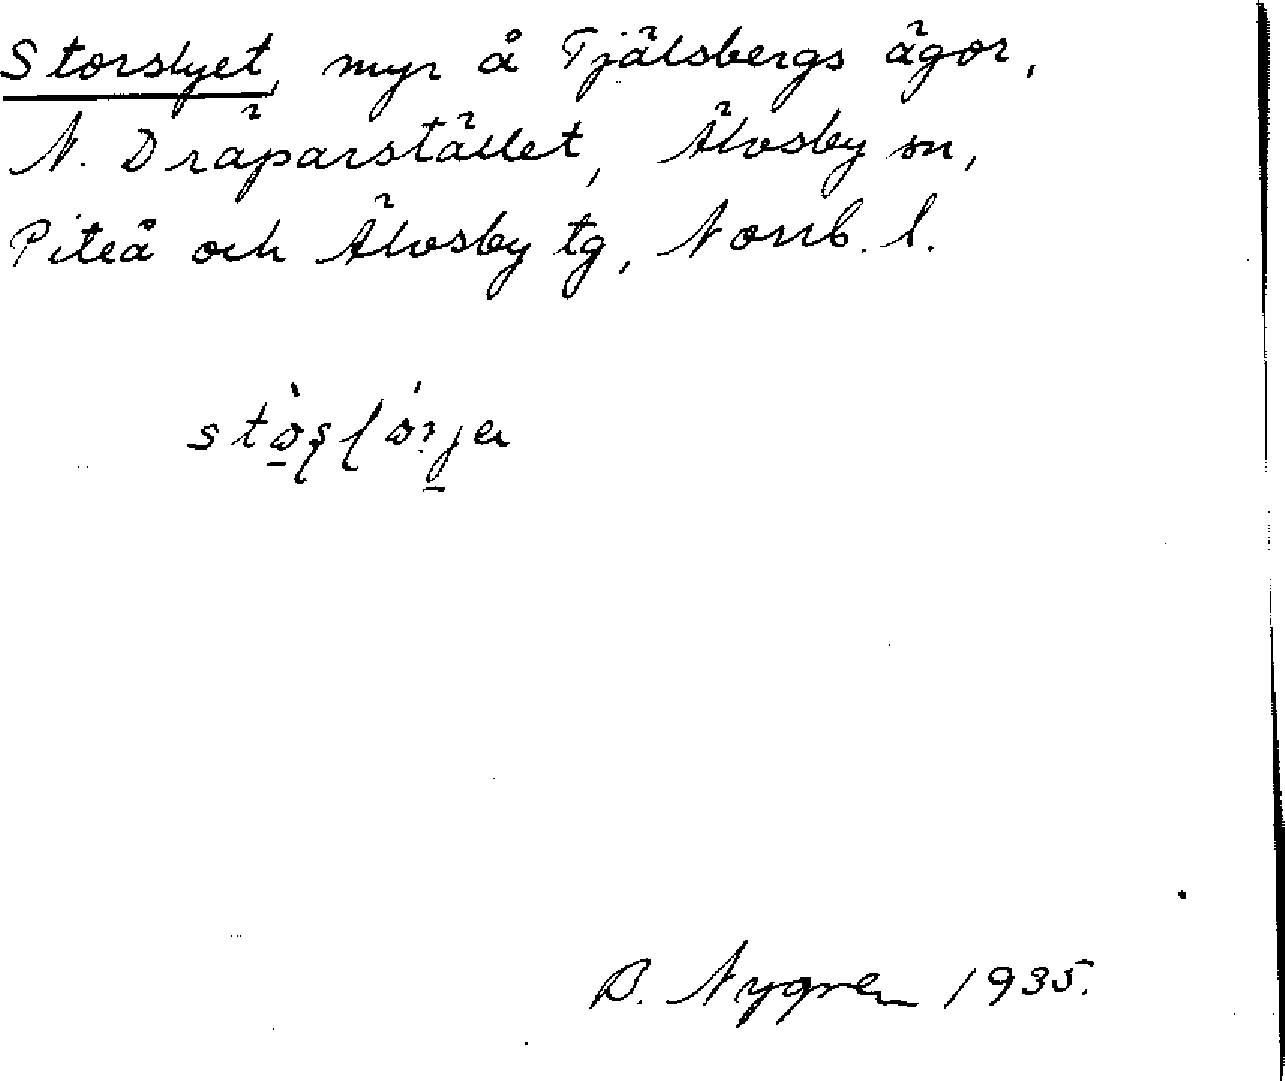 Storslyet, myr å Tjälsbergs ägor,
N. Dräparstället, Älvsby sn,
Piteå och Älvsby tg, Norrb. l.
B. Nygren 1935.